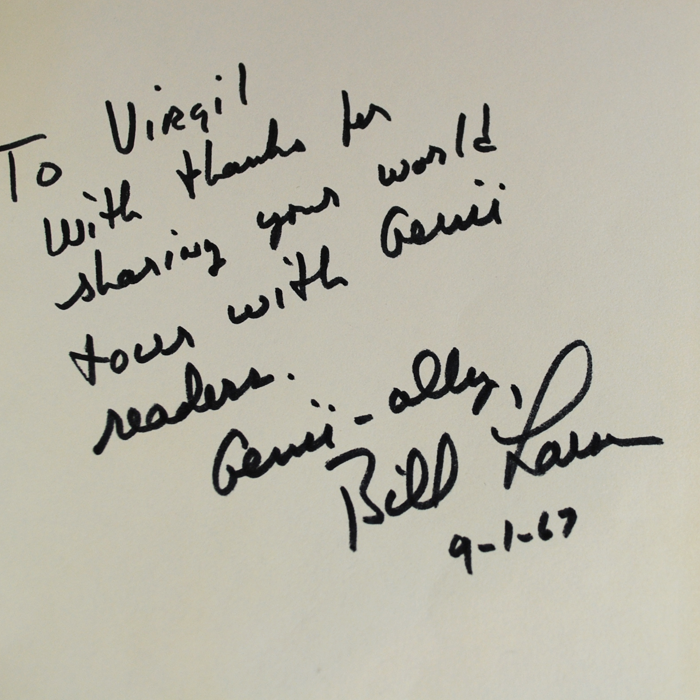 To Virgil
With thanks for
sharing your world
tour with Genii
readers.
Genii-ally,
Bill Larsen
9-1-67